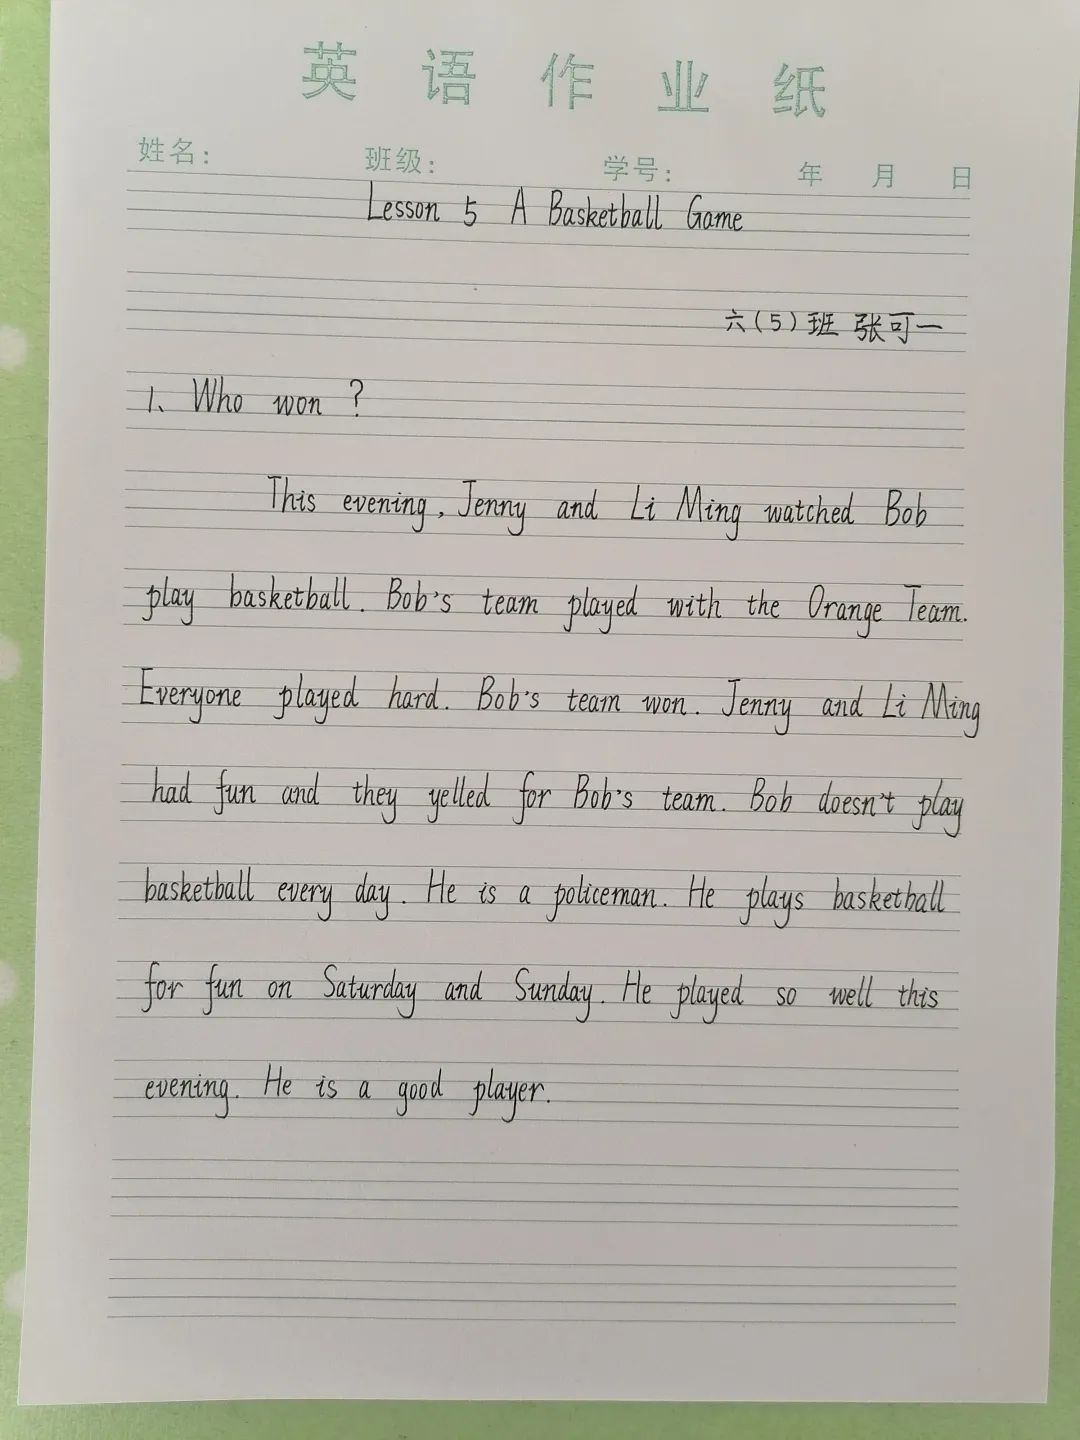 英语作业纸
姓名： 班级： 学号： 年 月 日
Lesson 5 A Basketball Game
六(5)班 张可一
1、Who won ?
This evening, Jenny and Li Ming watched Bob
play basketball. Bob's team played with the Orange Team.
Everyone played hard. Bob's team won. Jenny and Li Ming
had fun and they yelled for Bob's team. Bob doesn't play
basketball every day. He is a policeman. He plays basketball
for fun on Saturday and Sunday. He played so well this
evening. He is a good player.